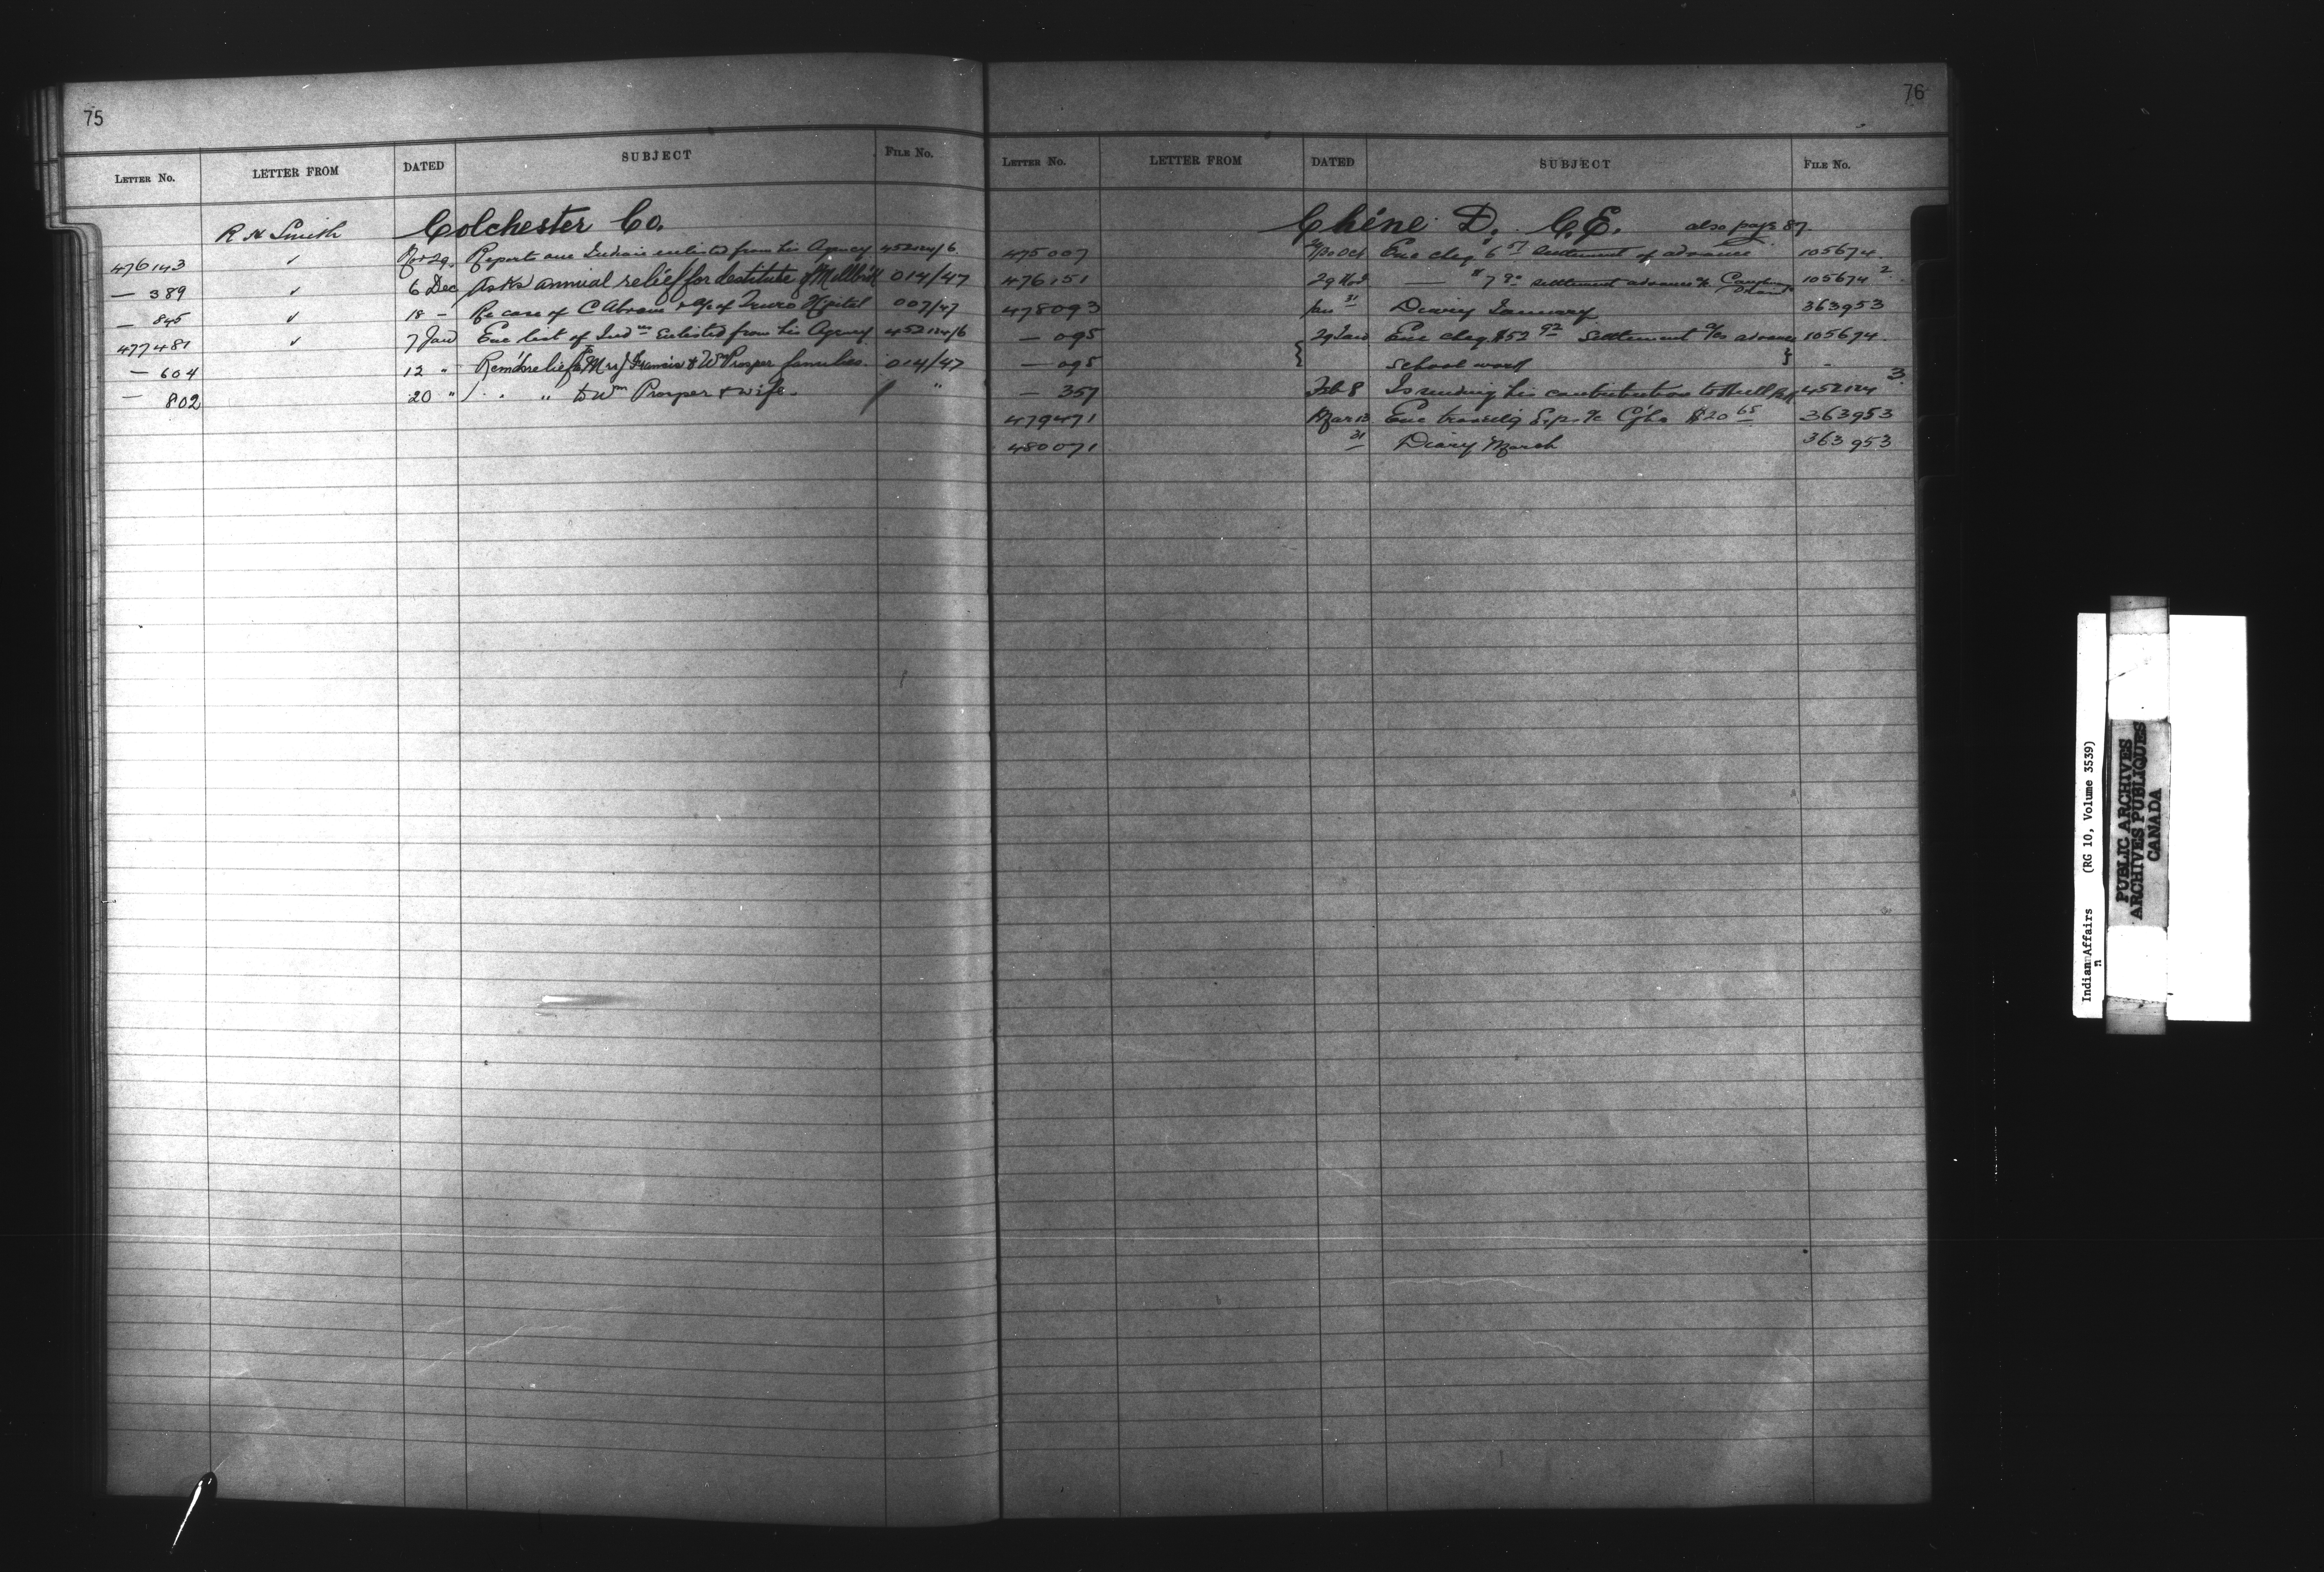 75
LETTER NO. LETTER FROM DATED SUBJECT FILE NO.
R H Smith Colchester Co.
476143 ✓ Nov 29. Reports one Indian enlisted from his Agency 452124/6
— 389 ✓ 6 Dec Asks annual relief for destitute of Millbrook 014/47
— 845 ✓ 18 - Re case of C Abram & of Truro Hospital 007/47
477481 ✓ 7 Jan Enc list of Indns Enlisted from his Agency 452124/6
— 604 12 " relief Mrs J Francis & Wm Prosper families. 014/47
— 802 20 " " " to Wm Prosper & wife. "
76
LETTER NO. LETTER FROM DATED SUBJECT FILE NO.
Chéné D. C.E. also page 87.
475007 Oct Enc cheq 6 57 Settlement of advance 105674
476151 29 Nov — " 7 90 settlement advance a/c 105674 2
478093 Jan 31 Diary January 363953
— 095 29 Jan Enc cheq $52 92 Settlement a/c advance 105674.
— 095 { School work }
— 357 Feb 8 Is sending his contribution to 452124 3
479471 Mar 13 Enc travellg Exps a/c $20 65 363953
480071 31 Diary March 363953
Indian Affairs (RG 10, Volume 3539)
n
PUBLIC ARCHIVES
ARCHIVES PUBLIQUES
CANADA